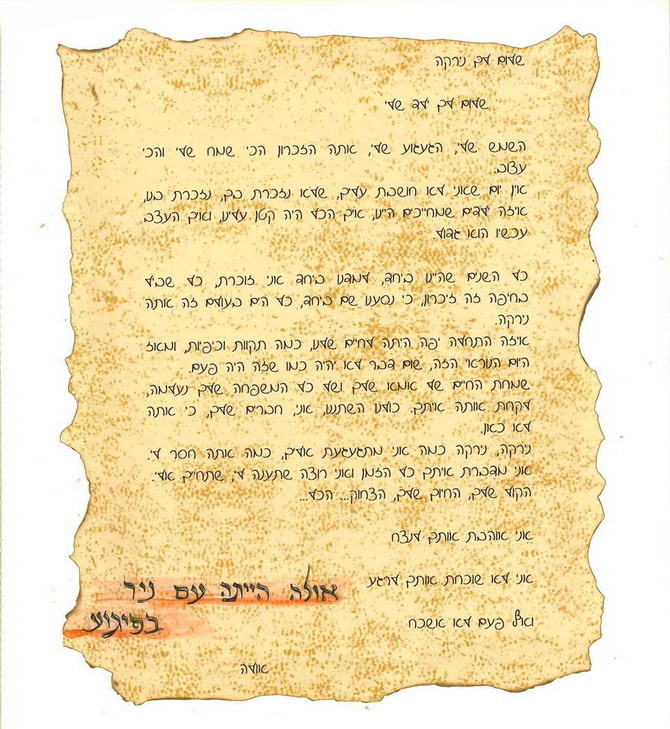 שלום לך נירקה
שלום לך ילד שלי
השמש שלי, הגעגוע שלי, אתה הזכרון הכי שמח שלי והכי
עצוב.
אין יום שאני לא חושבת עליך, שלא נזכרת בך, נזכרת בנו,
איזה ילדים שמחייכים היינו, איך הכל היה קטן עלינו, ואיך העצב
עכשיו הוא גדול.
כל השנים שהיינו ביחד, למדנו ביחד אני זוכרת, כל שביל
בחיפה זה זיכרון, כי נסענו שם ביחד, כל הים בעולם זה אותה
נירקה.
איזה התחלה יפה היתה לחיים שלנו, כמה תקוות וכיפיות, ומאז
היום הנוראי הזה, שום דבר לא יהיה כמו שזה היה פעם.
שמחת החיים של אמא שלך ושל כל המשפחה שלך נעלמה,
לקחת אותה איתך. כולנו השתננו, אני, חברים שלך, כי אתה
לא כאן.
נירקה, נירקה כמה אני מתגעגעת אליך, כמה אתה חסר לי.
אני מדברת איתך כל הזמן ואני רוצה שתענה לי, שתחייך אלי.
הקול שלך, החיוך שלך, הצחוק... הכל...
אני אוהבת אותך לנצח
אני לא שוכחת אותך לרגע
ואף פעם לא אשכח
אולה הייתה עם ניר
בפיגוע
אולה